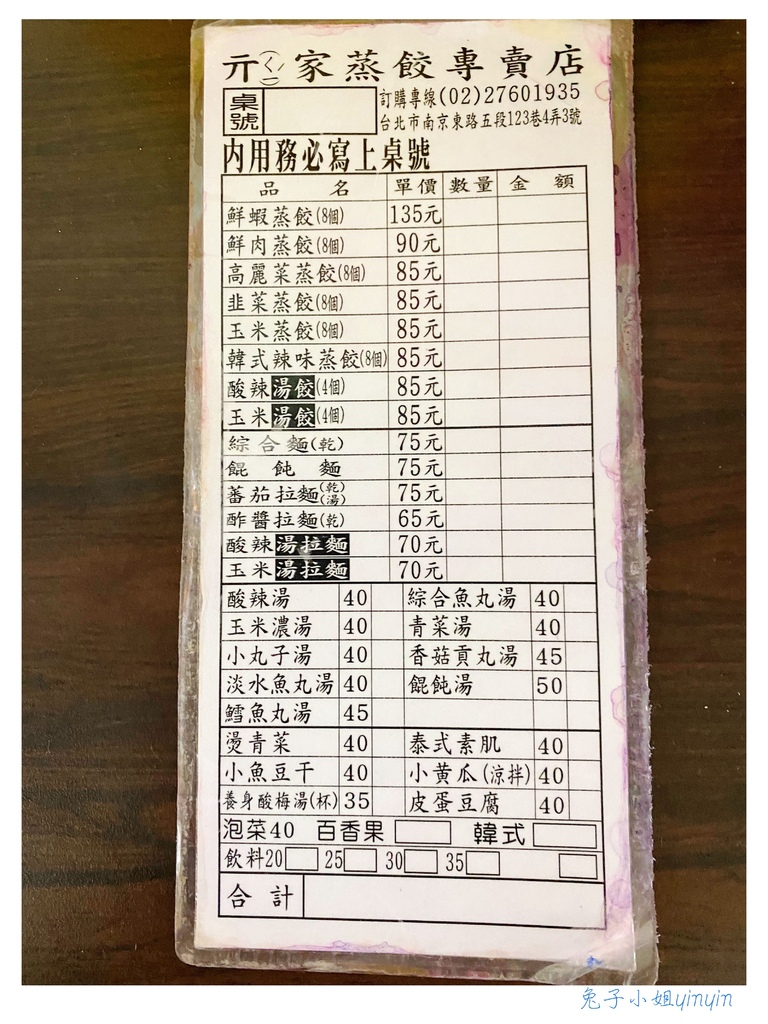 亓(ㄑㄧˊ)家蒸餃專賣店
桌號 訂購專線(02)27601935
台北市南京東路五段123巷4弄3號
內用務必寫上桌號
品名 單價 數量 金額
鮮蝦蒸餃(8個) 135元
鮮肉蒸餃(8個) 90元
高麗菜蒸餃(8個) 85元
韭菜蒸餃(8個) 85元
玉米蒸餃(8個) 85元
韓式辣味蒸餃(8個) 85元
酸辣湯餃(4個) 85元
玉米湯餃(4個) 85元
綜合麵(乾) 75元
餛飩麵 75元
蕃茄拉麵(乾)(湯) 75元
酢醬拉麵(乾) 65元
酸辣湯拉麵 70元
玉米湯拉麵 70元
酸辣湯 40 綜合魚丸湯 40
玉米濃湯 40 青菜湯 40
小丸子湯 40 香菇貢丸湯 45
淡水魚丸湯 40 餛飩湯 50
鱈魚丸湯 45
燙青菜 40 泰式素肌 40
小魚豆干 40 小黃瓜(涼拌) 40
養身酸梅湯(杯) 35 皮蛋豆腐 40
泡菜40 百香果 韓式
飲料20 25 30 35
合計
兔子小姐yinyin